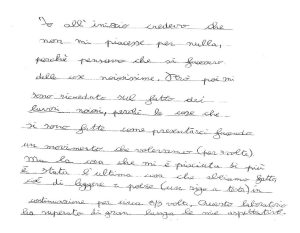 Io all'inizio credevo che
non mi piacesse per nulla,
perchè pensavo che si facessero
delle cose noiosissime. Però poi mi
sono ricreduto sul fatto dei
lavori noiosi, perché le cose che
si sono fatte come presentarci facendo
un movimento che volevamo (per svolta).
Ma la cosa che mi è piaciuta di più
è stata l'ultima cosa che abbiamo fatto,
di leggere a potse (una riga a testa) in
continuazione per circa 8/9 volte. Questo laboratorio
ha superato di gran lunga le mie aspettative.